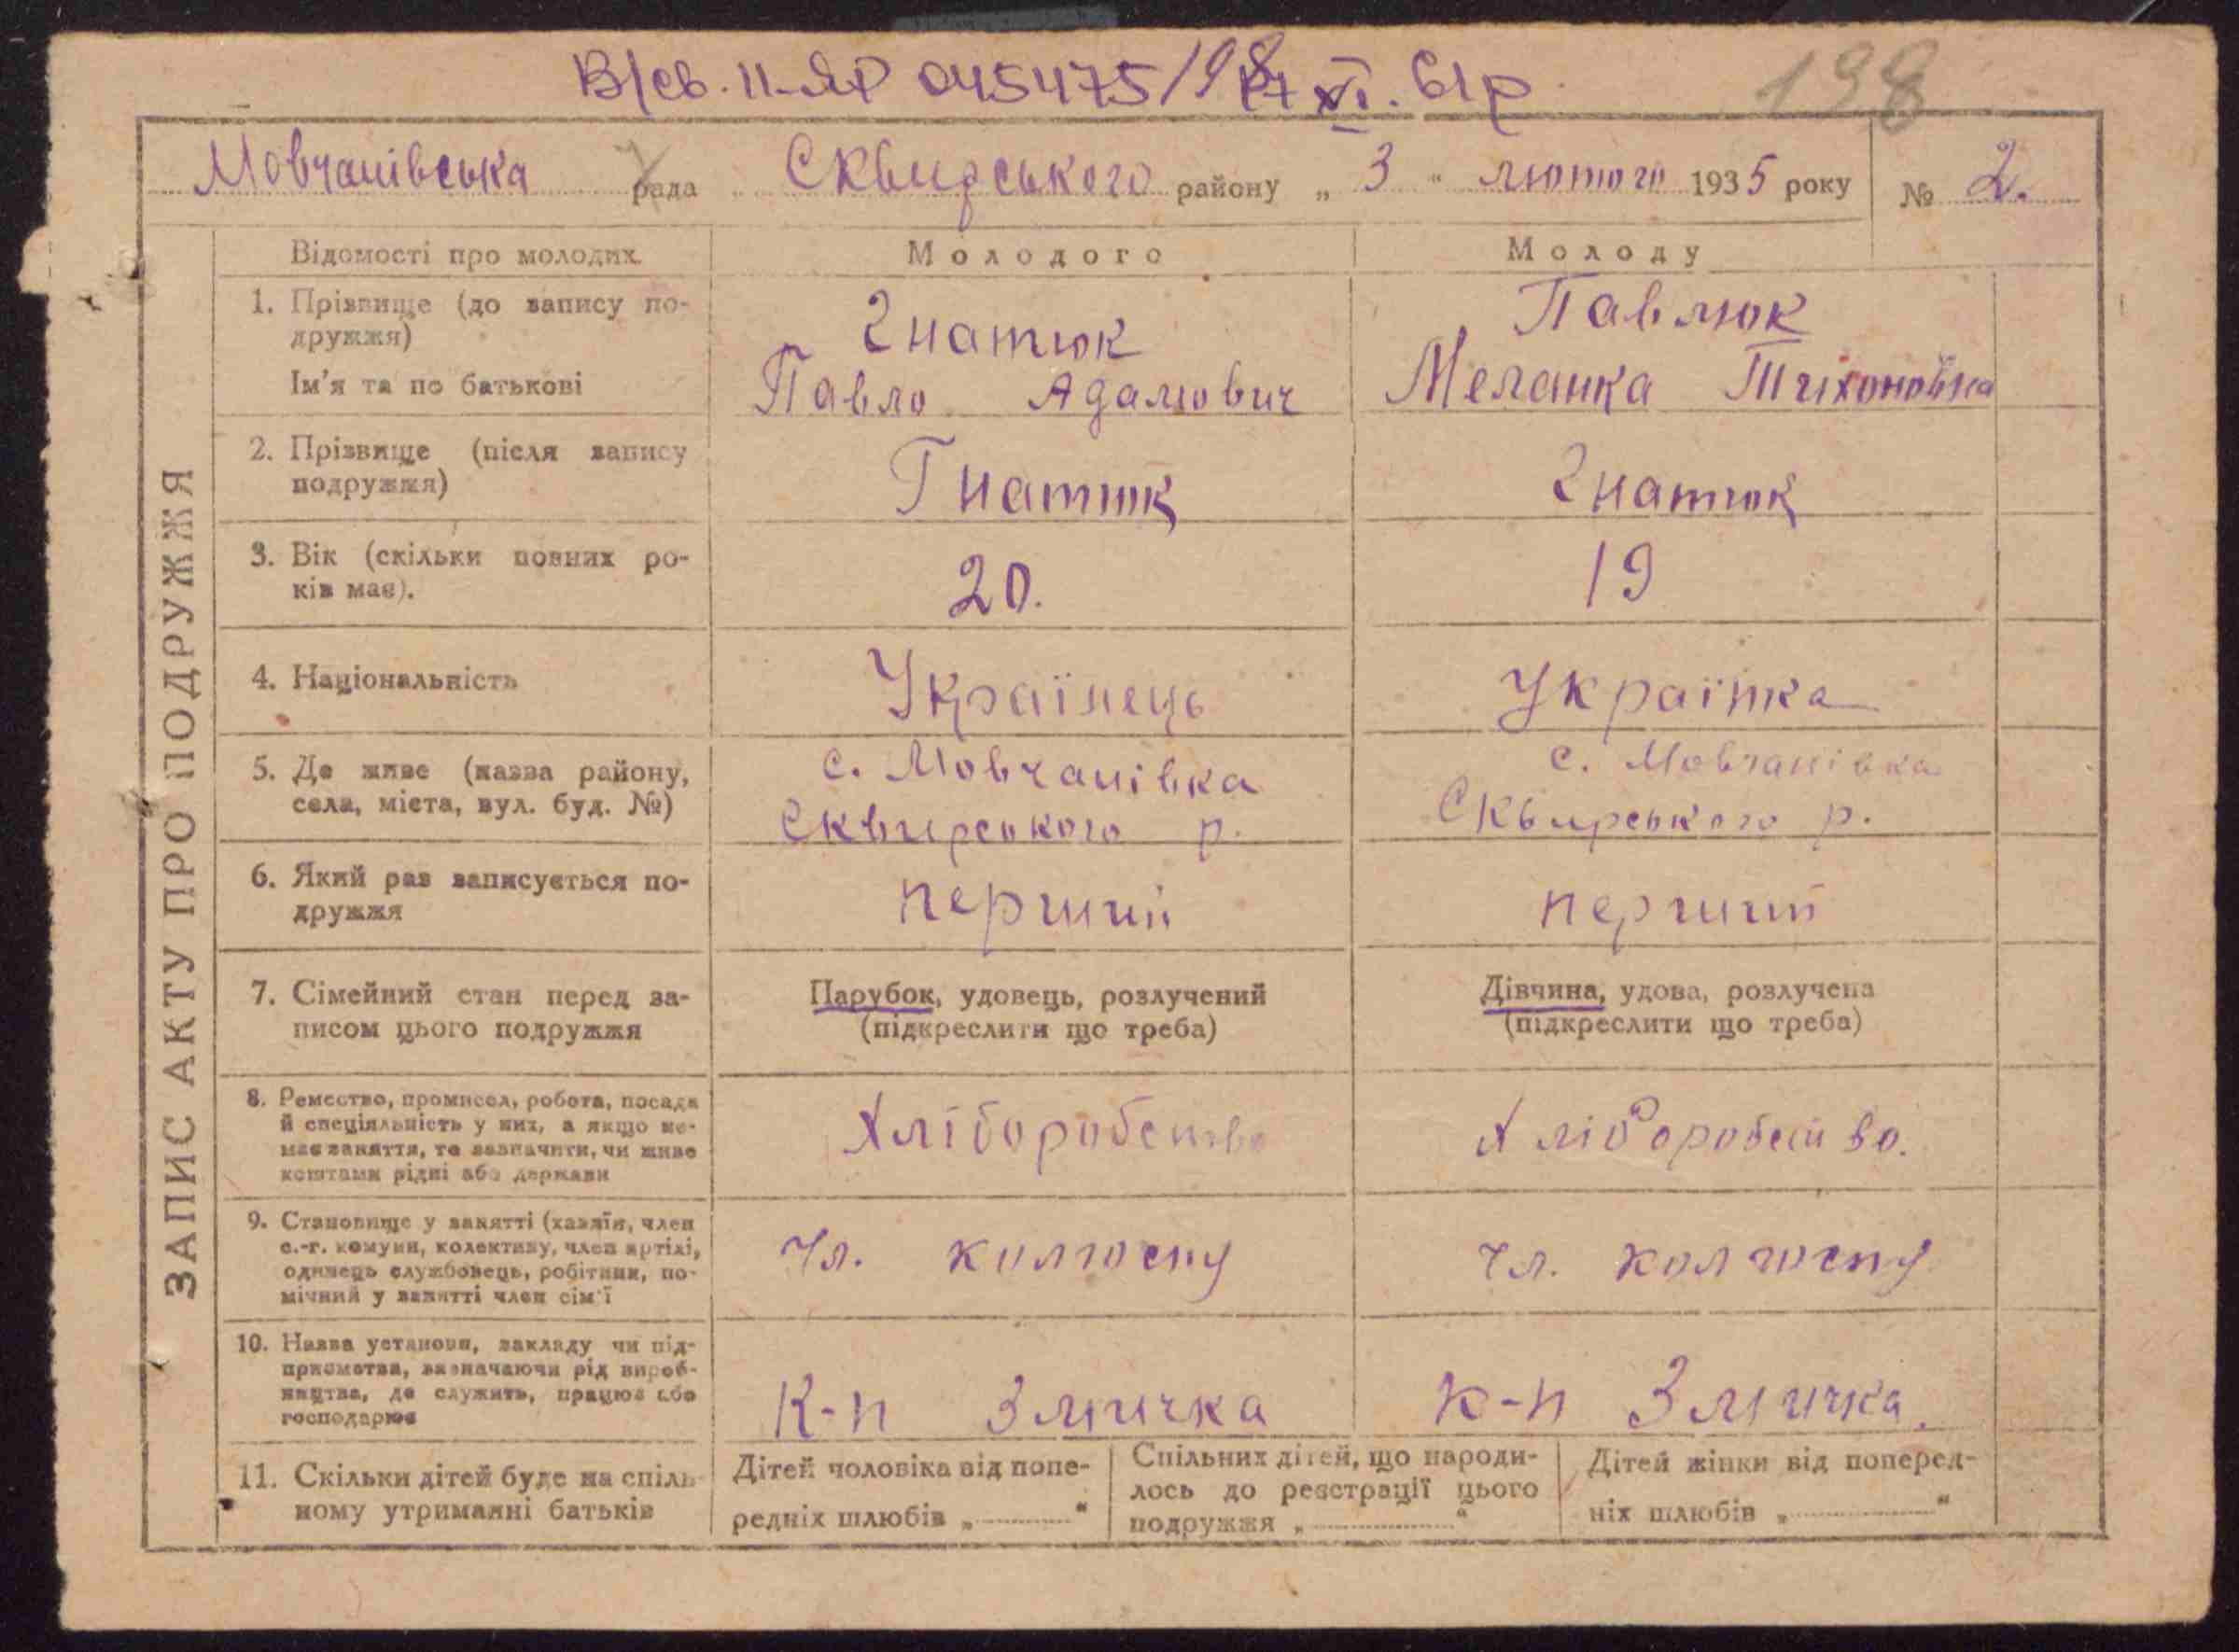 В/св. II-ЯР 045475/198 XI. 61р
198
Мовчанівська рада Сквирського району „ 3 " лютого 1935 року № 2.
ЗАПИС АКТУ ПРО ПОДРУЖЖЯ
Відомості про молодих Молодого Молоду
1. Прізвище (до запису по-
дружжя)
Гнатюк Павлюк
Ім'я та по батькові Павло Адамович Меланка Тихоновна
2. Прізвище (після запису
подружжя)
Гнатюк Гнатюк
3. Вік (скільки повних ро-
ків має).
20. 19
4. Національність Українець Українка
5. Де живе (назва району,
села, міста, вул. буд. №)
с. Мовчанівка с. Мовчанівка
Сквирського р. Сквирського р.
6. Який раз записується по-
дружжя
перший перший
7. Сімейний стан перед за-
писом цього подружжя
Парубок, удовець, розлучений
(підкреслити що треба)
Дівчина, удова, розлучена
(підкреслити що треба)
8. Ремество, промисел, робота, посада
й спеціяльність у них, а якщо не-
має заняття, то зазначити, чи живе
коштами рідні або держави
Хліборобство Хліборобство.
9. Становище у занятті (хазяїн, член
с.-г. комуни, колективу, член артілі,
одинець службовець, робітник, по-
мічний у занятті член сім'ї
чл. колгоспу чл. колгоспу
10. Назва установи, закладу чи під-
приємства, зазначаючи рід вироб-
ництва, де служить, працює або
господарює
К-п Змичка к-п Змичка.
11. Скільки дітей буде на спіль-
ному утриманні батьків
Дітей чоловіка від попе-
редніх шлюбів „ "
Спільних дітей, що народи-
лось до реєстрації цього
подружжя „ "
Дітей жінки від поперед-
ніх шлюбів „ "